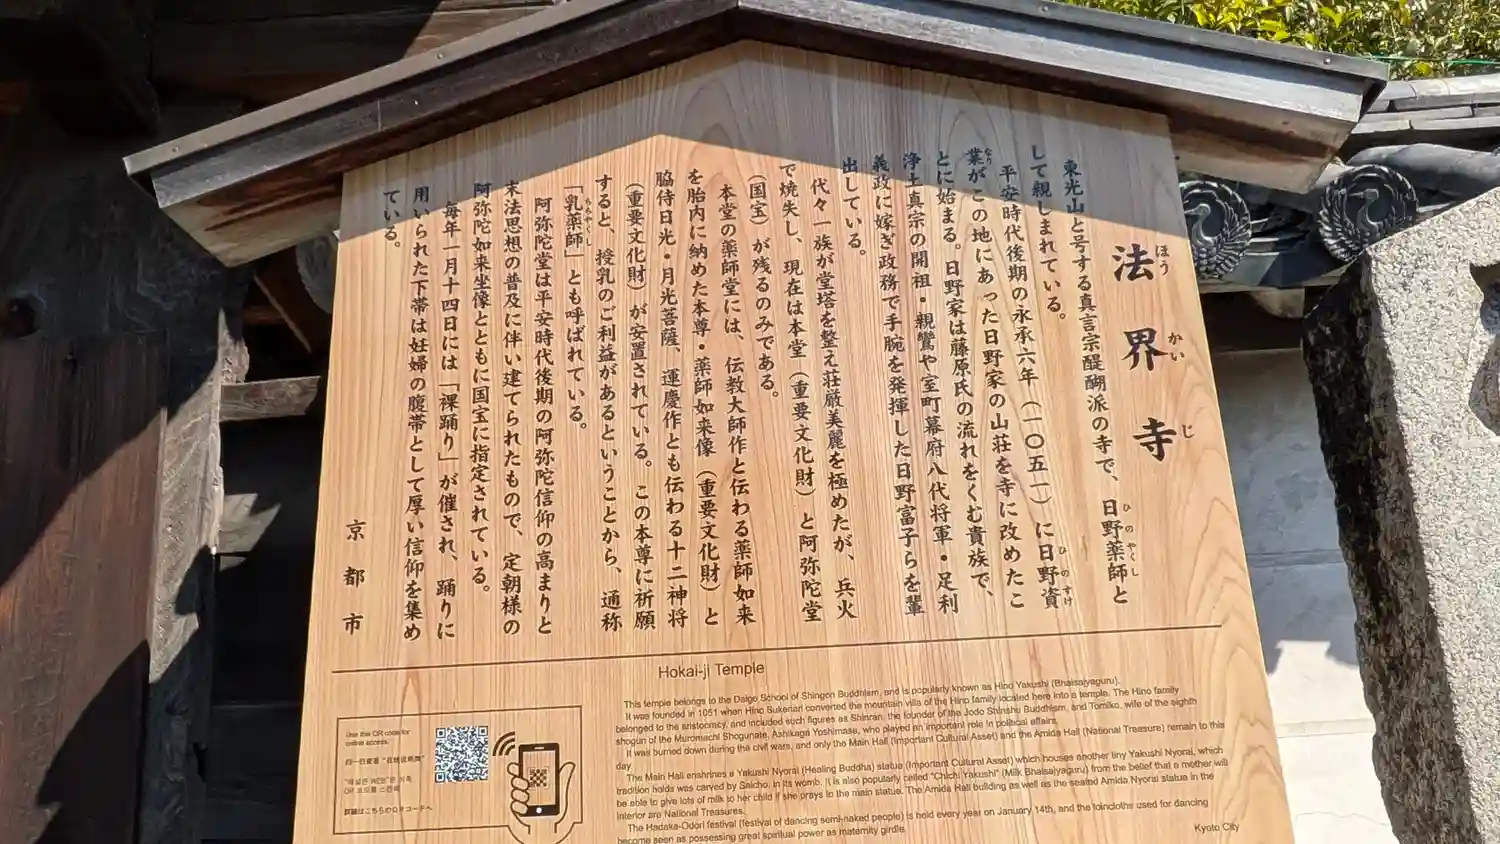 法界寺
ほう かい じ
東光山と号する真言宗醍醐派の寺で、日野薬師と
ひの やくし
して親しまれている。
平安時代後期の永承六年（一〇五一）に日野資
ひの すけ
業がこの地にあった日野家の山荘を寺に改めたこ
なり
とに始まる。日野家は藤原氏の流れをくむ貴族で、
浄土真宗の開祖・親鸞や室町幕府八代将軍・足利
義政に嫁ぎ政務で手腕を発揮した日野富子らを輩
出している。
代々一族が堂塔を整え荘厳美麗を極めたが、兵火
で焼失し、現在は本堂（重要文化財）と阿弥陀堂
（国宝）が残るのみである。
本堂の薬師堂には、伝教大師作と伝わる薬師如来
を胎内に納めた本尊・薬師如来像（重要文化財）と
脇侍日光・月光菩薩、運慶作とも伝わる十二神将
（重要文化財）が安置されている。この本尊に祈願
すると、授乳のご利益があるということから、通称
「乳薬師」とも呼ばれている。
ちちやくし
阿弥陀堂は平安時代後期の阿弥陀信仰の高まりと
末法思想の普及に伴い建てられたもので、定朝様の
阿弥陀如来坐像とともに国宝に指定されている。
毎年一月十四日には「裸踊り」が催され、踊りに
用いられた下帯は妊婦の腹帯として厚い信仰を集め
ている。
京都市
Hokai-ji Temple
This temple belongs to the Daigo School of Shingon Buddhism, and is popularly known as Hino Yakushi (Bhaisajyaguru).
It was founded in 1051 when Hino Sukenari converted the mountain villa of the Hino family located here into a temple. The Hino family
belonged to the aristocracy, and included such figures as Shinran, the founder of the Jodo Shinshu Buddhism, and Tomiko, wife of the eighth
shogun of the Muromachi Shogunate, Ashikaga Yoshimasa, who played an important role in political affairs.
It was burned down during the civil wars, and only the Main Hall (Important Cultural Asset) and the Amida Hall (National Treasure) remain to this
day.
The Main Hall enshrines a Yakushi Nyorai (Healing Buddha) statue (Important Cultural Asset) which houses another tiny Yakushi Nyorai, which
tradition holds was carved by Saicho, in its womb. It is also popularly called "Chichi Yakushi" (Milk Bhaisajyaguru) from the belief that a mother will
be able to give lots of milk to her child if she prays to the main statue. The Amida Hall building as well as the seated Amida Nyorai statue in the
interior are National Treasures.
The Hadaka-Odori festival (festival of dancing semi-naked people) is held every year on January 14th, and the loincloths used for dancing
become seen as possessing great spiritual power as maternity girdle.
Kyoto City
Use this QR code for
online access.
扫一扫查看
QR
詳細はこちらのQRコードへ